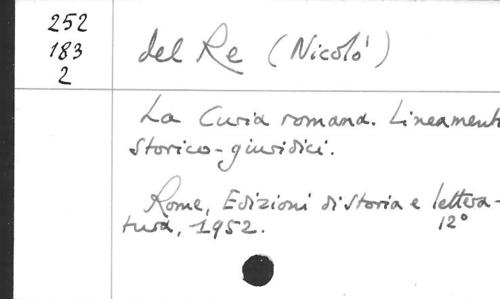 252
183
2
del Re (Nicolò)
La Curia romana. Lineamenti
storico-giuridici.
Rome, Edizioni di storia e lettera-
tura, 1952. 12°